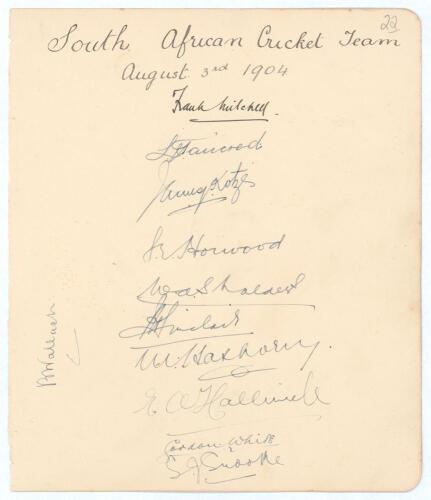 22
South African Cricket Team
August 3rd 1904
Frank Mitchell.
L J Tancred
Johannes J. Kotze
S E Horwood
W A Shalders
J H Sinclair
M Hathorn.
E A Halliwell
Gordon White
S J Snooke
B Wallach